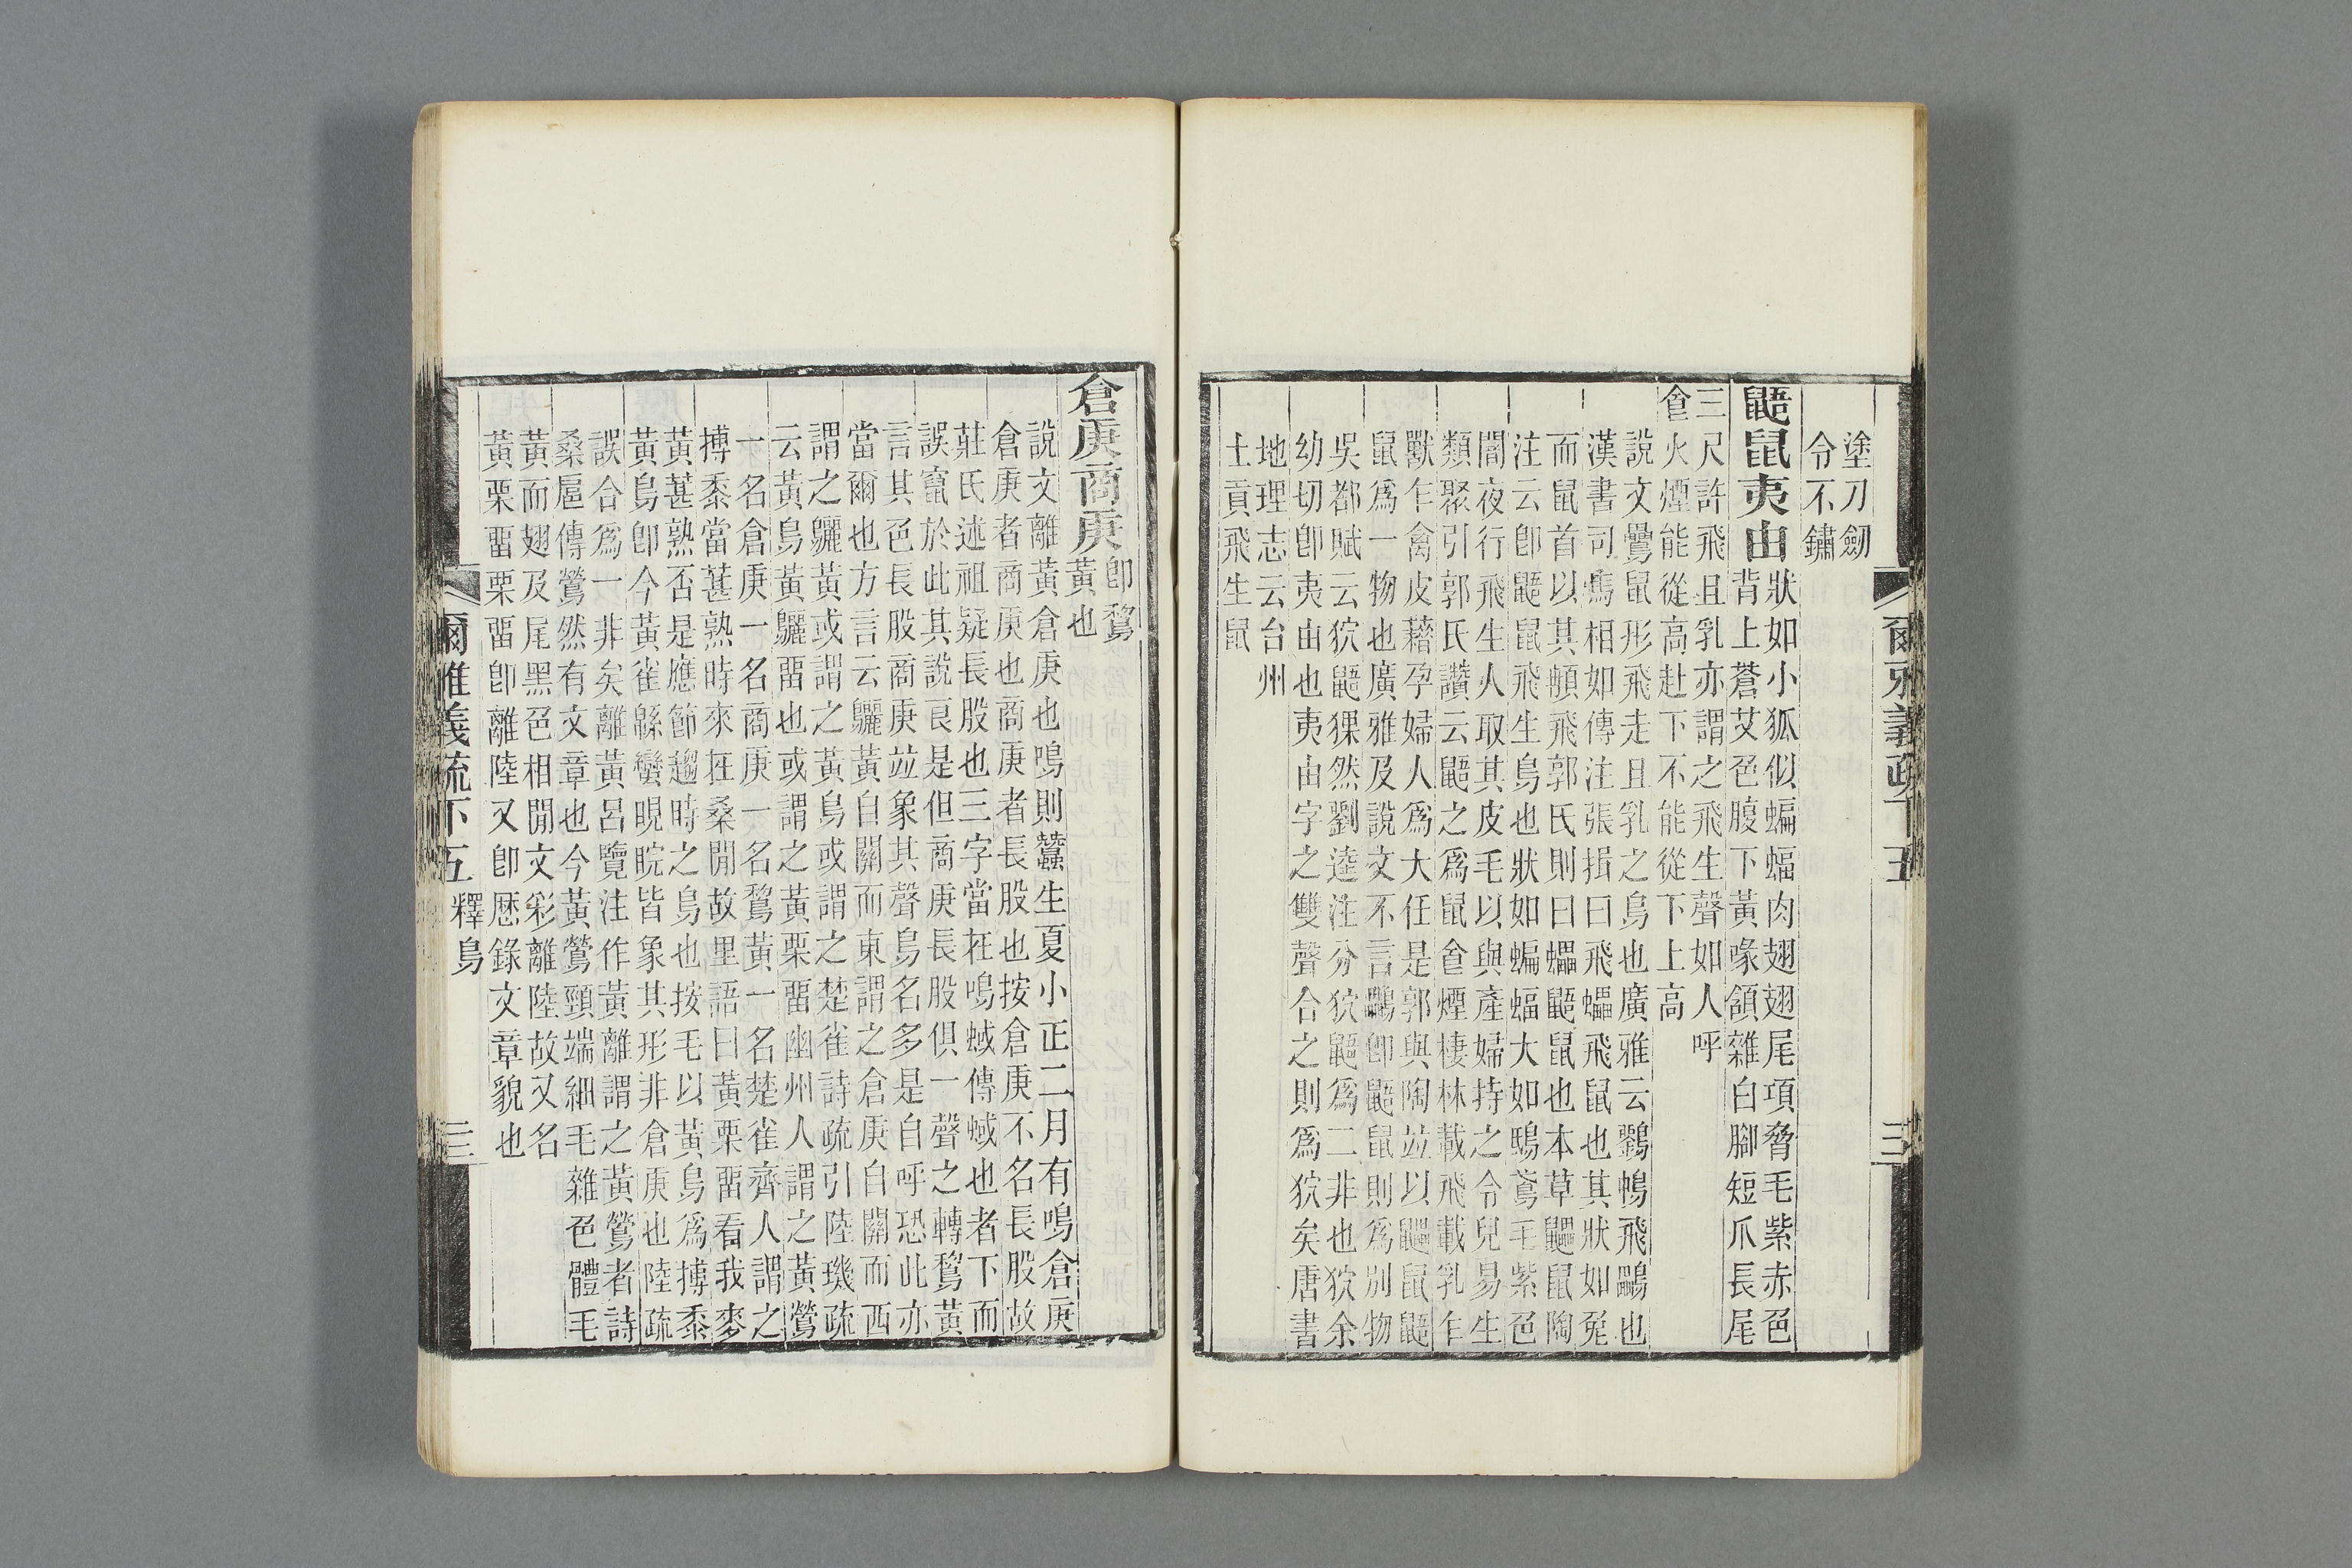 爾雅義疏下五 三
塗刀劒
令不鏽
鼯鼠夷由
狀如小狐似蝙蝠肉翅翅尾項脅毛紫赤色
背上蒼艾色腹下黃喙頷雜白腳短爪長尾
三尺許飛且乳亦謂之飛生聲如人呼
食火煙能從高赴下不能從下上高
說文鸓鼠形飛走且乳之鳥也廣雅云飛鸓也
漢書司馬相如傳注張揖曰飛蠝飛鼠也其狀如兔
而鼠首以其頫飛郭氏則曰蠝鼯鼠也本草鼺鼠陶
注云卽鼯鼠飛生鳥也狀如蝙蝠大如鴟鳶毛紫色
闇夜行飛生人取其皮毛以與產婦持之令兒易生
類聚引郭氏讚云鼯之爲鼠食煙棲林載飛載乳乍
獸乍禽皮藉孕婦人爲大任是郭與陶竝以鼺鼠鼯
鼠爲一物也廣雅及說文不言鸓卽鼯鼠則爲別物
吳都賦云狖鼯猓然劉逵注分狖鼯爲二非也狖余
幼切卽夷由也夷由字之雙聲合之則爲狖矣唐書
地理志云台州
土貢飛生鼠
倉庚商庚
卽鵹
黃也
說文離黃倉庚也鳴則蠶生夏小正二月有鳴倉庚
倉庚者商庚也商庚者長股也按倉庚不名長股故
莊氏述祖疑長股也三字當在鳴蜮傳蜮也者下而
誤竄於此其說良是但商庚長股俱一聲之轉鵹黃
言其色長股商庚竝象其聲鳥名多是自呼恐此亦
當爾也方言云鸝黃自關而東謂之倉庚自關而西
謂之鸝黃或謂之黃鳥或謂之楚雀詩疏引陸璣疏
云黃鳥黃鸝畱也或謂之黃栗畱幽州人謂之黃鶯
一名倉庚一名商庚一名鵹黃一名楚雀齊人謂之
搏黍當葚熟時來在桑閒故里語曰黃栗畱看我麥
黃葚熟否是應節趨時之鳥也按毛以黃鳥爲搏黍
黃鳥卽今黃雀緜蠻睍睆皆象其形非倉庚也陸疏
誤合爲一非矣離黃呂覽注作黃離謂之黃鶯者詩
桑扈傳鶯然有文章也今黃鶯頸端細毛雜色體毛
黃而翅及尾黑色相閒文彩離陸故又名
黃栗畱栗畱卽離陸又卽歷錄文章貌也
爾雅義疏下五 釋鳥 三